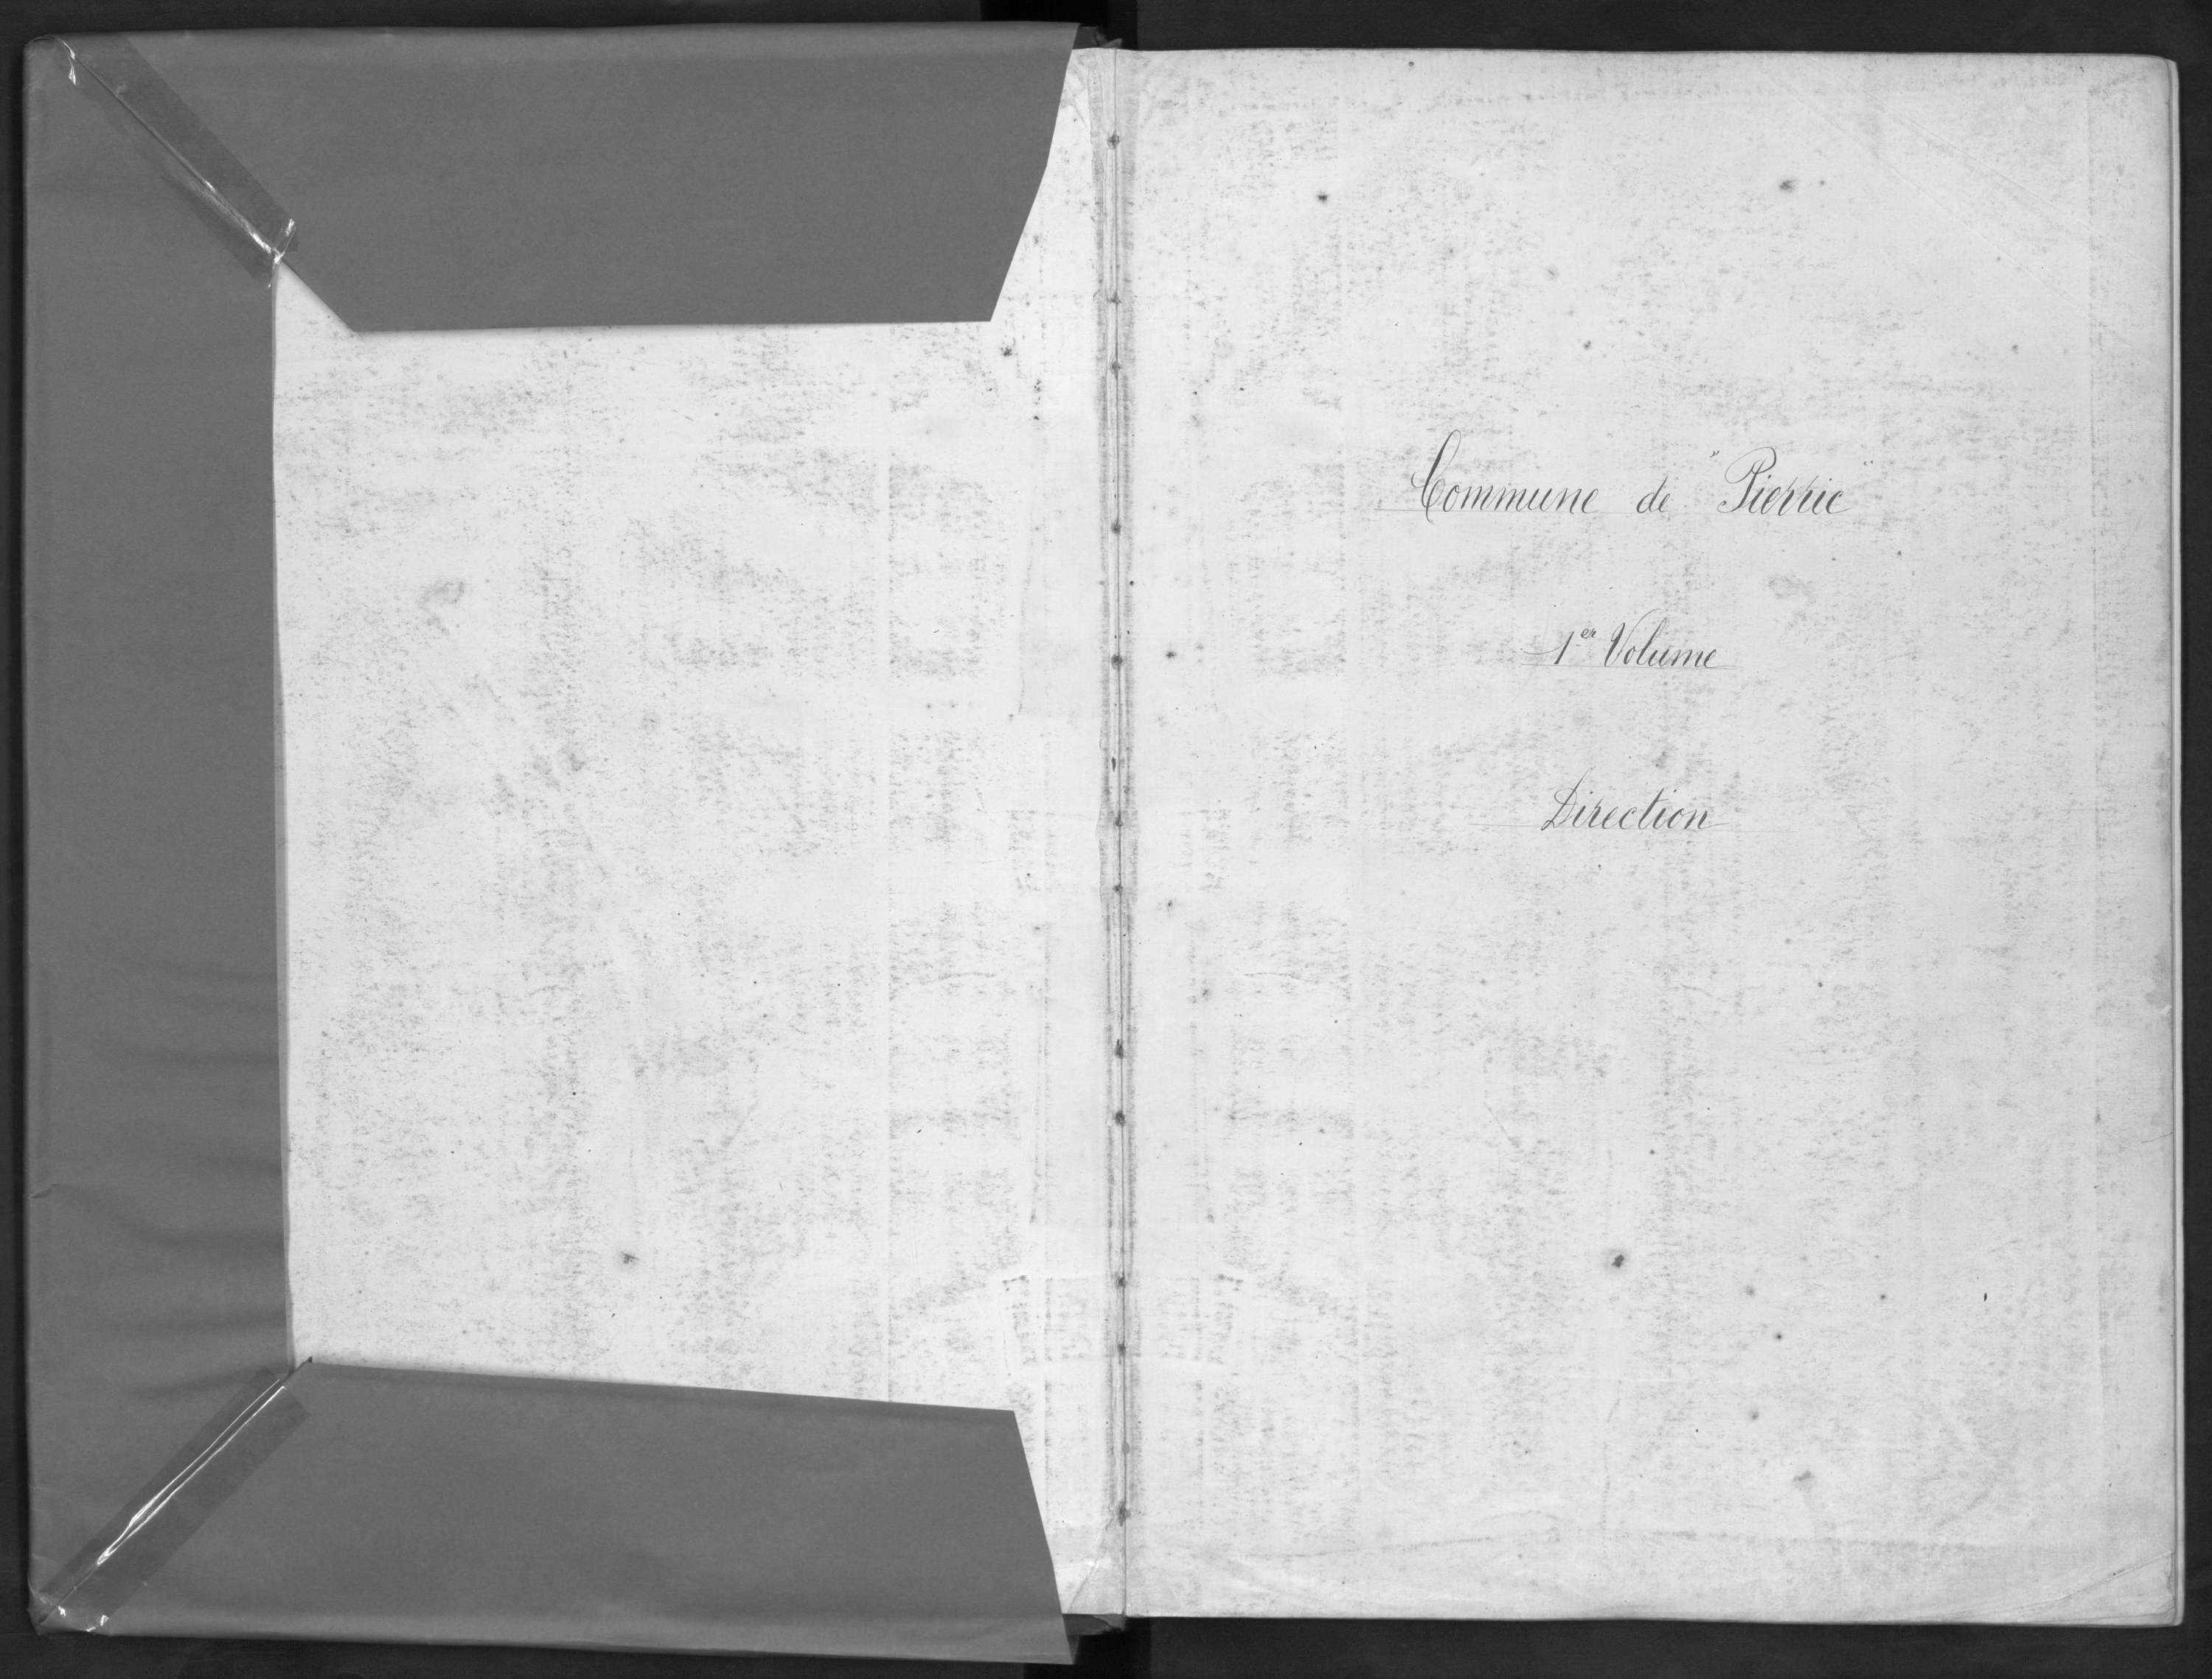 Commune de "Pierric"
1er Volume
Direction